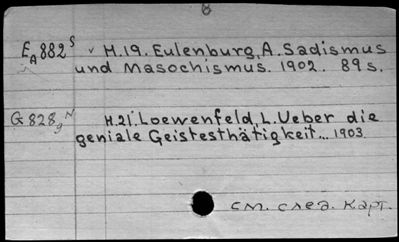 8
E A 882 S v H.19. Eulenburg, A. Sadismus
und Masochismus. 1902. 89 s.
G 828 g N H.21. Loewenfeld, L. Ueber die
geniale Geistesthätigkeit... 1903.
см. след. карт.